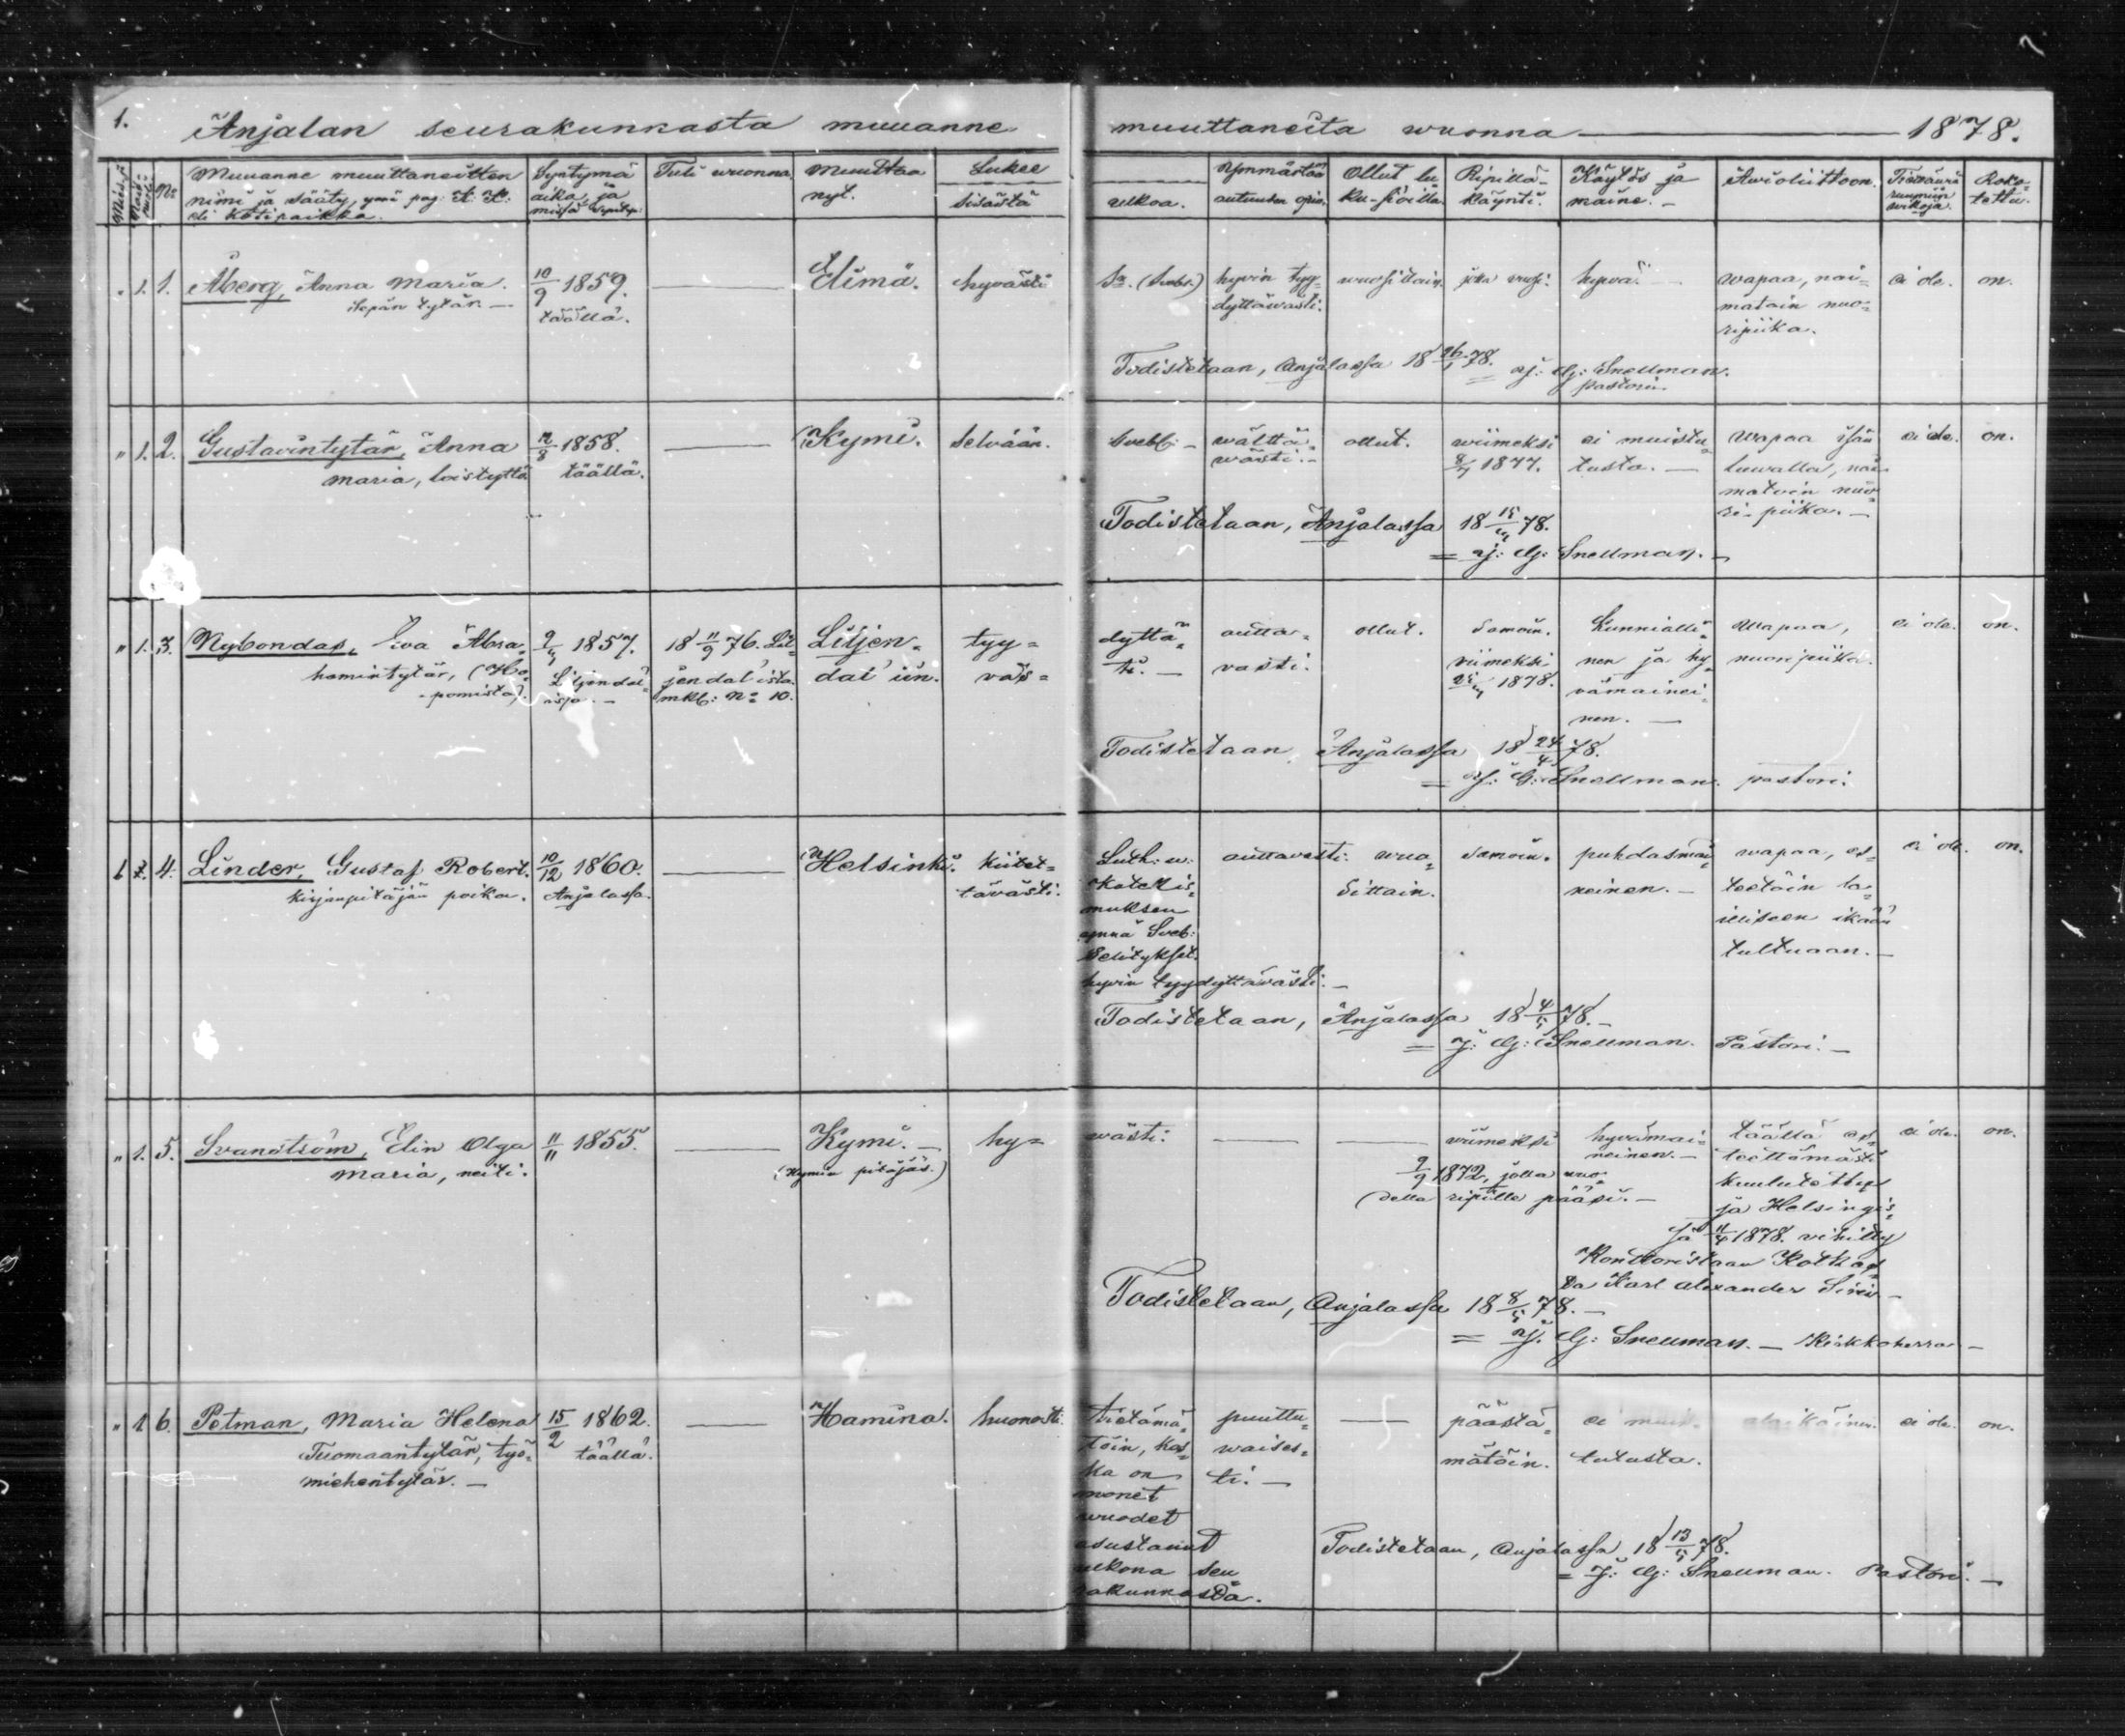 1. Anjalan seurakunnasta muuanne muuttaneita wuonna 1878.
Miesp. Naisp. No
Muuanne muuttaneitten
nimi ja sääty, ynnä pag.
eli kotipaikka.
Syntymä
aika, ja
missä
Tuli wuonna.
Muuttaa
nyt.
Lukee
sisästä
ulkoa.
Ymmärtää
autuuden opin.
Ollut lu-
ku-sioilla
Ripillä-
käynti.
Käytös ja
maine.
Avioliittoon.
Roko-
tettu.
" 1. 1. Åberg, Anna Maria.
Sepän tytär.
10/9 1859.
täällä.
Elimä.
hyvästi
hyvin tyy-
dyttäwästi.
wuosittain.
joka vuosi.
hyvä.
wapaa, nai-
matoin nuo-
ripiika.
ei ole.
on.
Todistetaan, Anjalassa 18 26/1 78.
G: Snellman.
pastori.
" 1. 2. Gustavintytär, Anna
Maria, loistyttö
1858.
täällä.
Kymi.
Selvään.
Svebl:
wälttä-
wästi.
ollut.
wiimeksi
1877.
ei muistu-
tusta.
Wapaa isän
luwalla, nai-
matoin nuo-
ri-piika.
ei ole.
on.
Todistetaan, Anjalassa 18 78.
G: Snellman.
" 1. 3. Nybondas, Eva Abra-
hamintytär,
1857.
Liljendal-
issa.
18 11/9 76. Lil-
jendal'ista.
mkb: No 10.
Liljen-
dal'iin.
tyy-
väs-
dyttä-
auttavasti.
ollut.
Samoin.
viimeksi
1878.
Kunnialli-
nen ja hy-
vämainei-
nen.
Wapaa,
nuoripiika.
ei ole.
on.
Todistetaan Anjalassa 18 24/4 78.
G: Snellman. pastori.
4. Linder, Gustaf Robert.
kirjanpitäjän poika.
10/12 1860.
Anjalassa.
Helsinki.
kiitet-
tävästi.
Luth: w:
Katekis-
muksen
ynnä Sveb:
Selitykset.
hyvin tyydyttäväsi.
auttavasti.
wuo-
sittain.
Samoin.
puhdasmai-
neinen.
wapaa, es-
teetöin la-
illiseen ikään
tultuaan.
ei ole.
on.
Todistetaan, Anjalassa 18 4/5 78.
G: Snellman. Pastori.
" 1. 5. Svanström, Elin Olga
Maria, neiti.
11/11 1855.
Kymi.
(Kymin pitäjäs.)
hy-
wästi.
wiimeksi
9/9 1872, jolla wuo-
della ripille pääsi.
hyvämai-
neinen.
täällä es-
teettömästi
kuulutettu
ja Helsingis-
sä 1878. vihitty
Konttoristaan
Karl Alexander
ei ole.
on.
Todistetaan, Anjalassa 18 8/5 78.
G: Snellman. Kirkkoherra
" 1 6. Petman, Maria Helena
Tuomaantytär, työ-
miehentytär.
15/2 1862.
täällä.
Hamina.
huonosti.
tietämä-
töin, kos-
ka on
monet
wuodet
asustanut
ulkona seu-
rakunnasta.
puuttu-
waises-
ti.
päästä-
mätöin.
ei muis-
tutusta.
alaikäinen.
ei ole.
on.
Todistetaan, Anjalassa 18 13/5 78.
G: Snellman. Pastori.